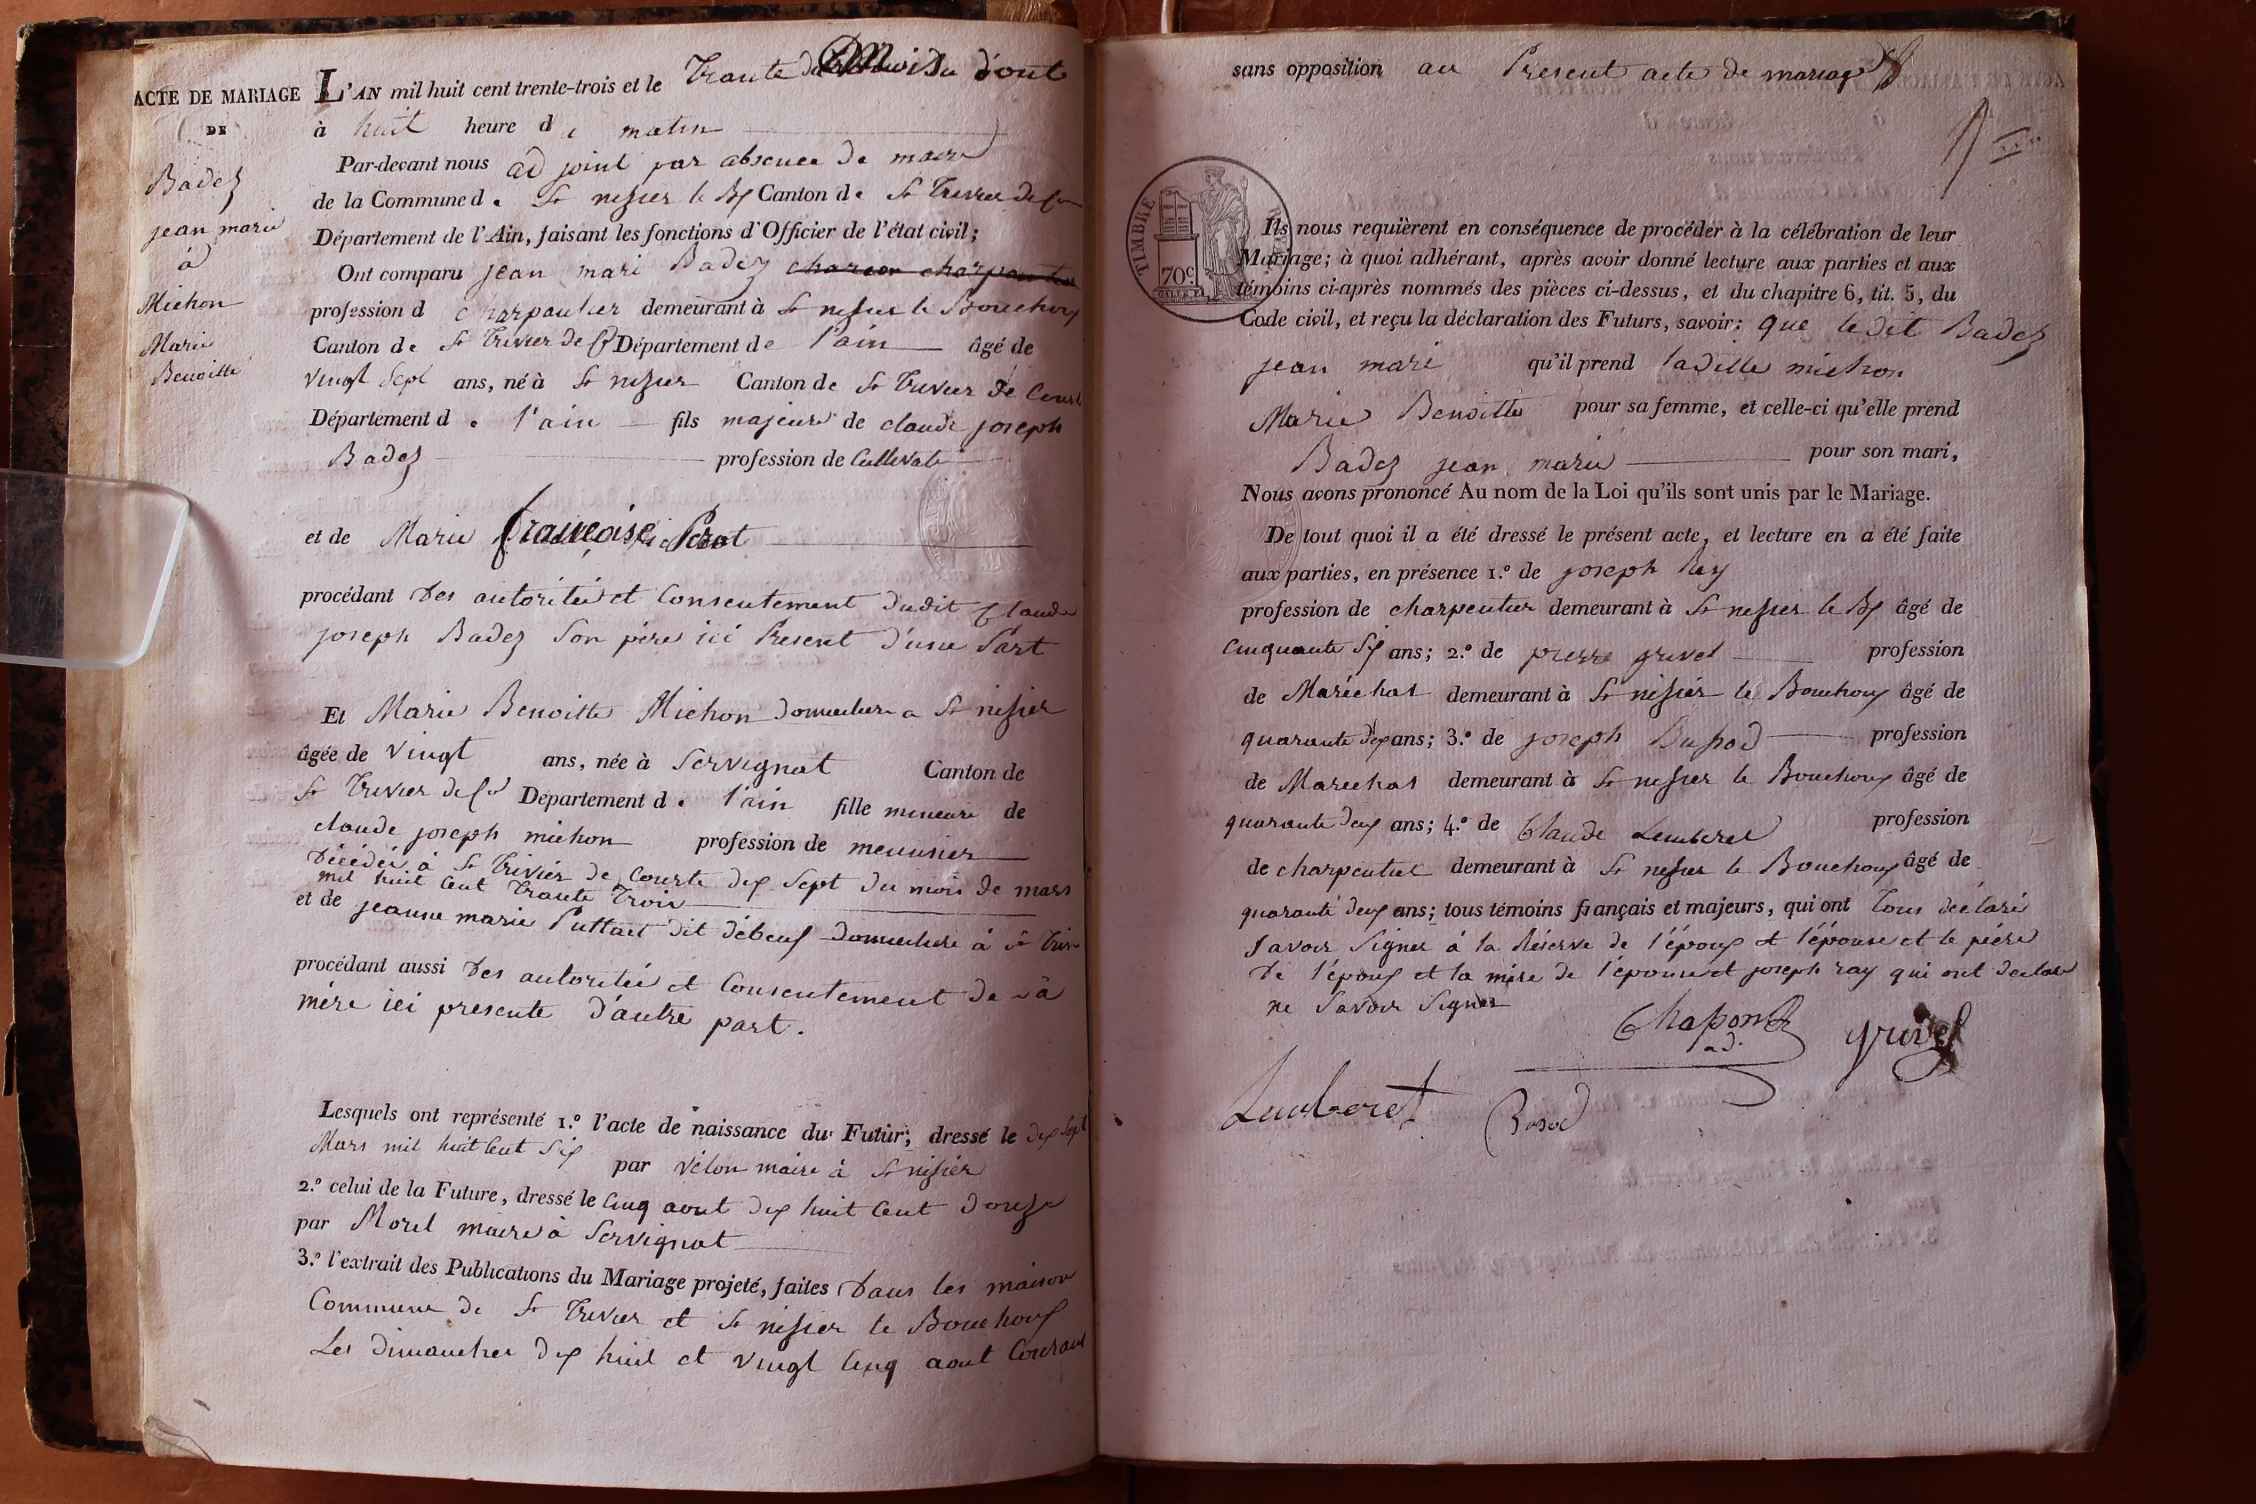 ACTE DE MARIAGE
DE
Badez
jean marie
à
Michon
Marie
Benoitte
L'AN mil huit cent trente-trois et le Trante du mois d'out
à huit heure de matin
Par-devant nous adjoint par absence de maire
de la Commune de St nisier le Bx Canton de St Trivier de Cour
Département de l'Ain, faisant les fonctions d'Officier de l'état civil;
Ont comparu jean mari Badez charon charpantier
profession d charpantier demeurant à St nisier le Bouchoux
Canton de St Trivier de C Département de l'ain âgé de
vingt sept ans, né à St nisier Canton de St Trivier de Court
Département de l'ain fils majeure de claude joseph
Badez profession de Cultivate
et de Marie françoise Perot
procédant Des autoritée et Consentement dudit Claude
joseph Badez Son père ici Present d'une Part
Et Marie Benoitte Michon domiciliere a St nisier
âgée de vingt ans, née à Servignat Canton de
St Trivier de Ct Département de l'ain fille mineure de
claude joseph michon profession de meunier
Décédée à St Trivier de Courte dix Sept du mois de mars
mil huit Cent Trante Trois
et de jeanne marie Puttait dit débeuf domiciliere à St Triv
procédant aussi Des autoritée et Consentement de sa
mère ici presente d'autre part.
Lesquels ont représenté 1.º l'acte de naissance du Futur, dressé le dix Sept
Mars mil huit Cent Six par vélon maire à St nisier
2.º celui de la Future, dressé le Cinq aout dix huit Cent douze
par Morel maire à Servignat
3.º l'extrait des Publications du Mariage projeté, faites Dans les maison
Commune de St Trivier et St nisier le Bouchoux
Les dimanches dix huit et vingt Cinq aout Courant
sans opposition au Present acte de mariage
TIMBRE
70c
Ils nous requièrent en conséquence de procéder à la célébration de leur
Mariage; à quoi adhérant, après avoir donné lecture aux parties et aux
témoins ci-après nommés des pièces ci-dessus, et du chapitre 6, tit. 5, du
Code civil, et reçu la déclaration des Futurs, savoir: que ledit Badez
jean mari qu'il prend ladille michon
Marie Benoitte pour sa femme, et celle-ci qu'elle prend
Badez jean marie pour son mari,
Nous avons prononcé Au nom de la Loi qu'ils sont unis par le Mariage.
De tout quoi il a été dressé le présent acte, et lecture en a été faite
aux parties, en présence 1.º de joseph Ray
profession de charpentier demeurant à St nisier le Bx âgé de
Cinquante Six ans; 2.º de pierre grivel profession
de Maréchal demeurant à St nisier le Bouchoux âgé de
quarante dix ans; 3.º de joseph Bupod profession
de Marechal demeurant à St nisier le Bouchoux âgé de
quarante deux ans; 4.º de Claude Lemberel profession
de charpentier demeurant à St nisier le Bouchoux âgé de
quarante deux ans; tous témoins français et majeurs, qui ont Tous déclaré
Savoir Signer à la Réserve de l'époux et l'épouse et le pére
De l'époux et la mère de l'épouse et joseph ray qui ont declare
ne Savoir Signer
Chapon
ad.
grivel
Lemberet